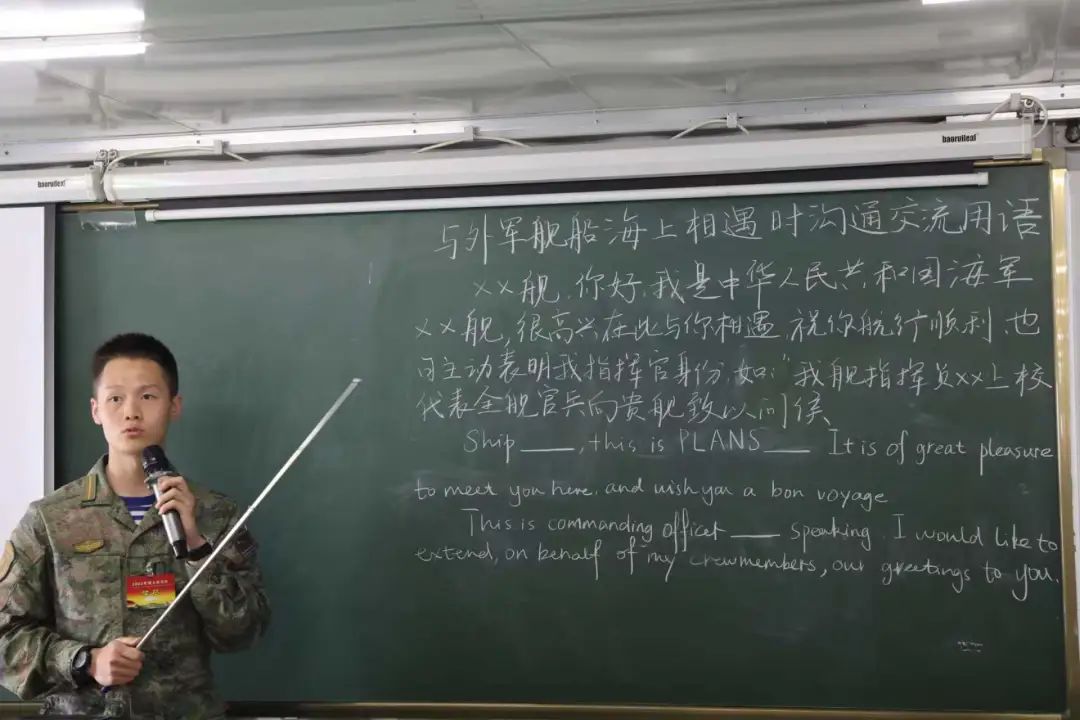 baoruileaf
baoruileaf
与外军舰船海上相遇时沟通交流用语
××舰,你好,我是中华人民共和国海军
××舰,很高兴在此与你相遇,祝你航行顺利,也
可主动表明我指挥官身份,如:“我舰指挥员××上校
代表全舰官兵向贵舰致以问候
Ship ____, this is PLANS ____ It is of great pleasure
to meet you here, and wish you a bon voyage
This is commanding officer ____ speaking. I would like to
extend, on behalf of my crewmembers, our greetings to you.